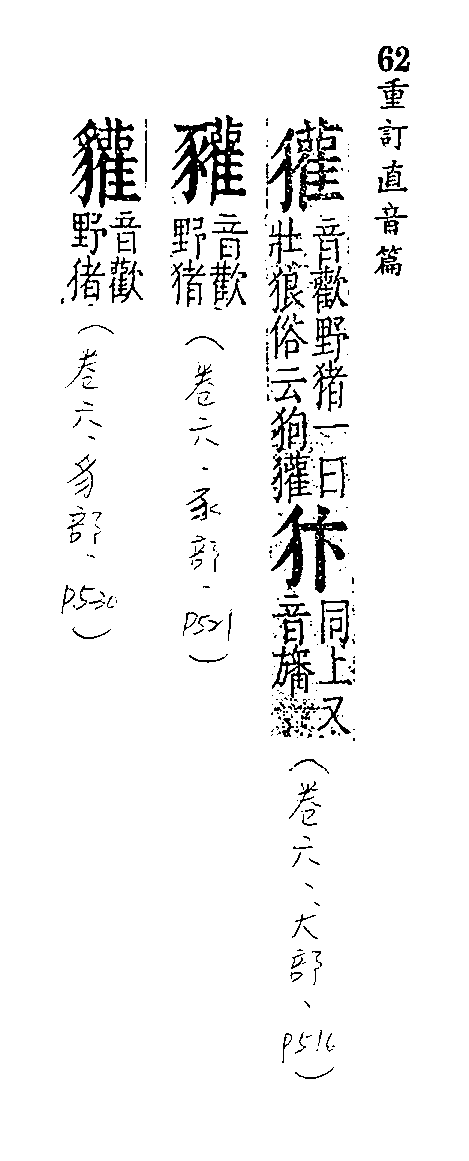 62重訂直音篇
獾音歡野猪一曰壯狼俗云狗獾犿同上又音旛
(卷六、犬部、P516)
豲音歡野猪
(卷六、豕部、P521)
貛音歡野猪
(卷六、豸部、P530)